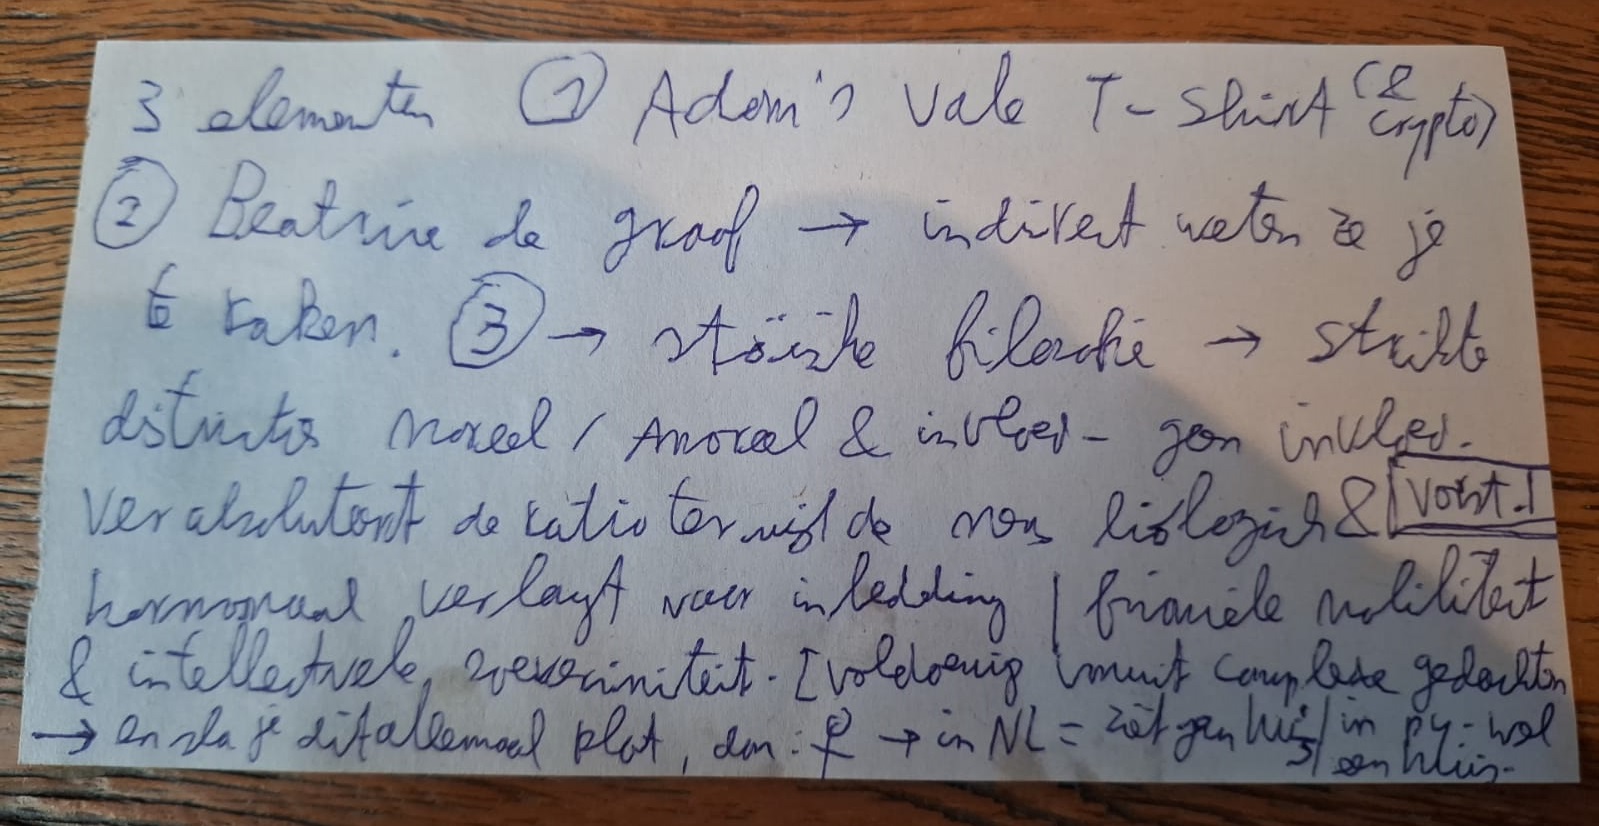 3 elementen ① Adam's vale T-shirt (& crypto)
② Beatrice de graaf → indirect weten ze je
te raken. ③ → stoïsche filosofie → strikte
distinctie moreel / Amoreel & invloed - geen invloed.
verabsoluteert de ratio terwijl de mens biologisch & voist.
hormonaal verlangt naar inbedding / financiële mobiliteit
& intellectuele soevereiniteit. [voldoening vanuit complexe gedachten
→ en sla je dit allemaal plat, dan: ♀ → in NL = ziet geen huis / in py - wel een huis.